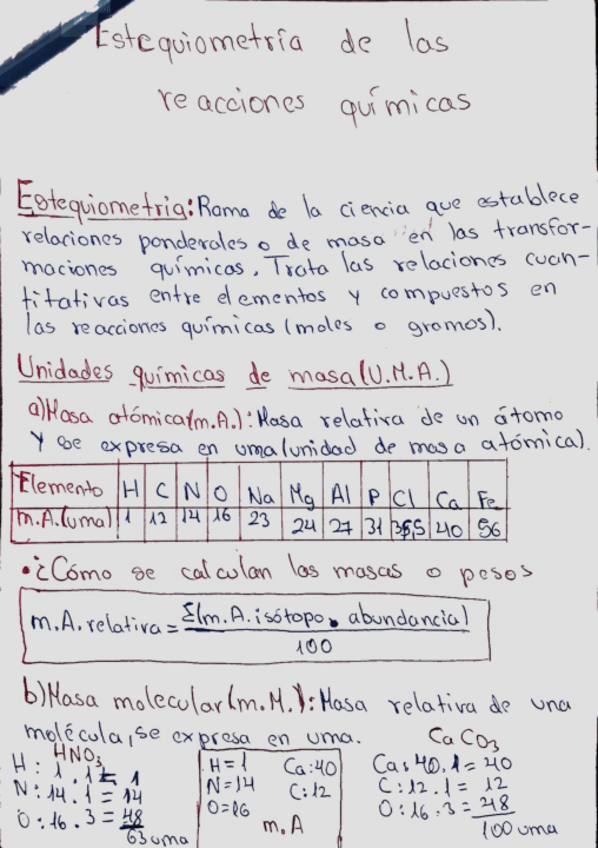 Estequiometría de las
reacciones químicas
Estequiometria: Rama de la ciencia que establece
relaciones ponderales o de masa en las transfor-
maciones químicas. Trata las relaciones cuan-
titativas entre elementos y compuestos en
las reacciones químicas (moles o gramos).
Unidades químicas de masa (U.M.A.)
a) Masa atómica (m.A.): Masa relativa de un átomo
y se expresa en uma (unidad de masa atómica).
Elemento H C N O Na Mg Al P Cl Ca Fe
m.A.(uma) 1 12 14 16 23 24 27 31 35,5 40 56
• ¿Cómo se calculan las masas o pesos
m.A. relativa = Σ(m.A. isótopo • abundancia)
100
b) Masa molecular (m.M.): Masa relativa de una
molécula, se expresa en uma.
HNO3
H: 1 . 1 = 1
N: 14 . 1 = 14
O: 16 . 3 = 48
63 uma
H = 1 Ca: 40
N = 14 C: 12
O = 16
m.A
CaCO3
Ca: 40 . 1 = 40
C: 12 . 1 = 12
O: 16 . 3 = 48
100 uma